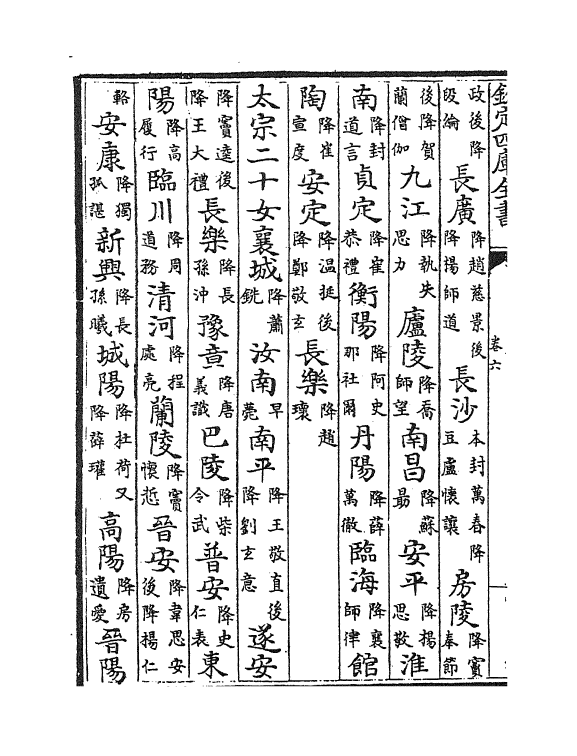 欽定四庫全書 卷六
政後降叚綸長廣降趙慈景後降楊師道長沙本封萬春降豆盧懷讓房陵降竇奉節
後降賀蘭僧伽九江降執失思力廬陵降喬師望南昌降蘇勗安平降楊思敬淮
南降封道言貞定降崔恭禮衡陽降阿史那社爾丹陽降薛萬徹臨海降襄師律館
陶降崔宣度安定降温挺後降鄭敬玄長樂降趙瓌
太宗二十女襄城降蕭銑汝南早薨南平降王敬直後降劉玄意遂安
降竇逵後降王大禮長樂降長孫沖豫章降唐義識巴陵降柴令武普安降史仁表東
陽降高履行臨川降周道務清河降程處亮蘭陵降竇懷悊晉安降韋思安後降楊仁
輅安康降獨孤諶新興降長孫曦城陽降杜荷又降薛瓘高陽降房遺愛晉陽